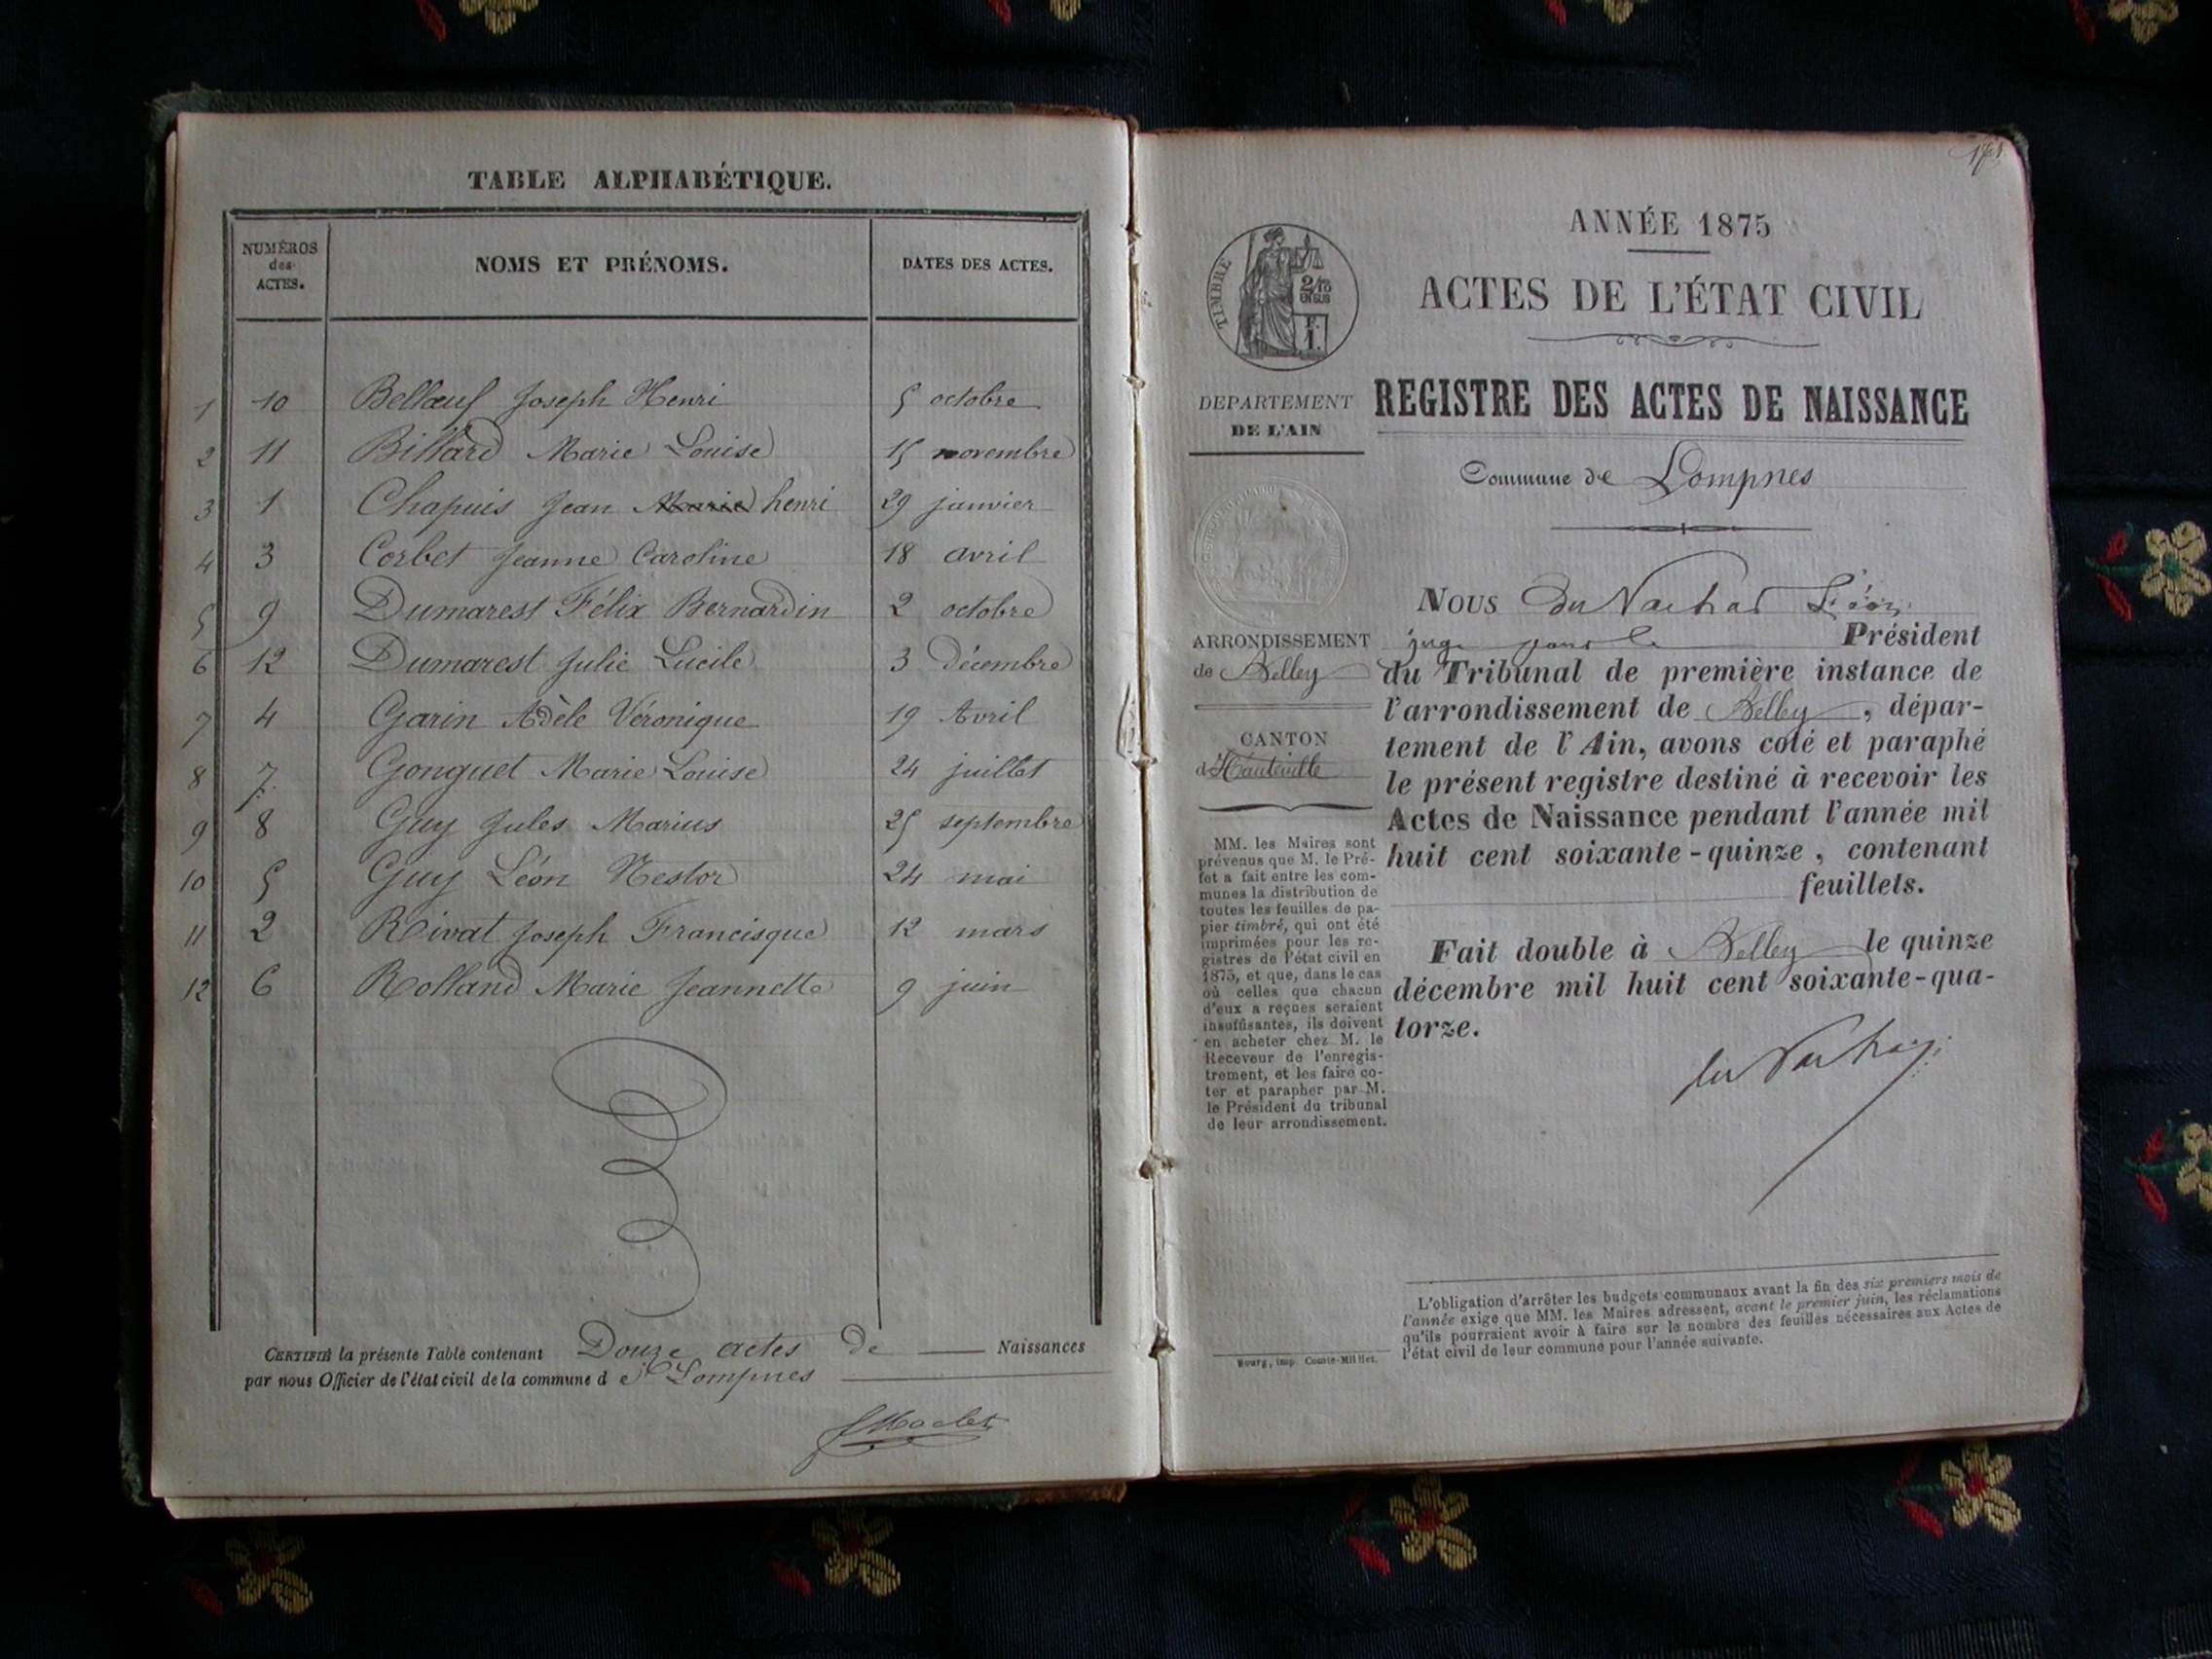 TABLE ALPHABÉTIQUE.
NUMÉROS des ACTES. NOMS ET PRÉNOMS. DATES DES ACTES.
1 10 Bellœuf Joseph Henri 5 octobre
2 11 Billard Marie Louise 15 novembre
3 1 Chapuis Jean Marie henri 29 janvier
4 3 Corbet Jeanne Caroline 18 avril
5 9 Dumarest Félix Bernardin 2 octobre
6 12 Dumarest Julie Lucile 3 décembre
7 4 Garin Adèle Véronique 19 Avril
8 7 Gonguet Marie Louise 24 juillet
9 8 Guy Jules Marius 25 septembre
10 5 Guy Léon Nestor 24 mai
11 2 Rivat Joseph Francisque 12 mars
12 6 Rolland Marie Jeannette 9 juin
CERTIFIÉ la présente Table contenant Douze actes de Naissances
par nous Officier de l'état civil de la commune d e Lompnes
ANNÉE 1875
ACTES DE L'ÉTAT CIVIL
REGISTRE DES ACTES DE NAISSANCE
Commune de Lompnes
TIMBRE
2/10
EN SUS
F.
1.
DEPARTEMENT
DE L'AIN
ARRONDISSEMENT
de Belley
CANTON
d'Hauteville
MM. les Maires sont
prévenus que M. le Pré-
fet a fait entre les com-
munes la distribution de
toutes les feuilles de pa-
pier timbré, qui ont été
imprimées pour les re-
gistres de l'état civil en
1875, et que, dans le cas
où celles que chacun
d'eux a reçues seraient
insuffisantes, ils doivent
en acheter chez M. le
Receveur de l'enregis-
trement, et les faire co-
ter et parapher par M.
le Président du tribunal
de leur arrondissement.
NOUS Léon
juge pour le Président
du Tribunal de première instance de
l'arrondissement de Belley, dépar-
tement de l'Ain, avons coté et paraphé
le présent registre destiné à recevoir les
Actes de Naissance pendant l'année mil
huit cent soixante-quinze, contenant
feuillets.
Fait double à Belley le quinze
décembre mil huit cent soixante-qua-
torze.
L'obligation d'arrêter les budgets communaux avant la fin des six premiers mois de
l'année exige que MM. les Maires adressent, avant le premier juin, les réclamations
qu'ils pourraient avoir à faire sur le nombre des feuilles nécessaires aux Actes de
l'état civil de leur commune pour l'année suivante.
Bourg, imp. Comte-Milliet.